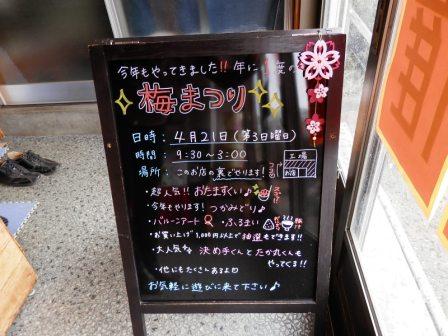 今年もやってきました!! 年に1度の
梅まつり
日時: 4月21日(第3日曜日)
時間: 9:30〜3:00
場所: このお店の裏でやります!
工場
お店
・超人気!! おたますくい♪
・今年もやります! つかみどり♪
・バルーンアート ・ふるまい
・お買い上げ1,000円以上で抽選もできます!!
・大人気な 決め手くんと たか丸くんも
やってくる!!
・他にもたくさんあるよ
お気軽に遊びに来て下さい♪